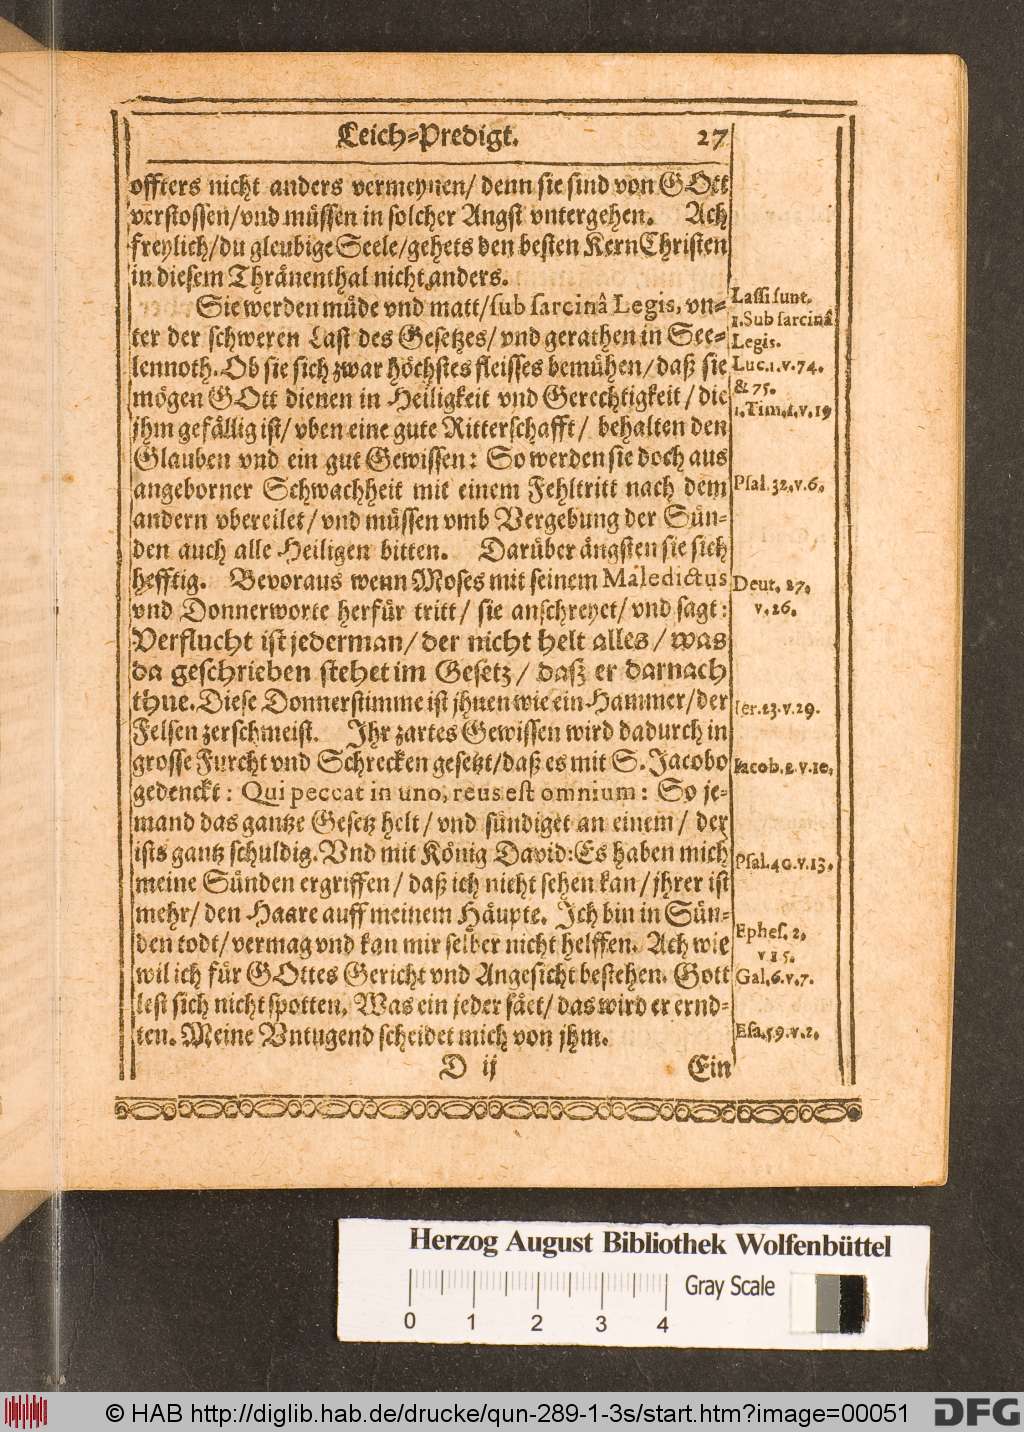 Leich-Predigt. 27
offters nicht anders vermeynen/ denn sie sind von GOtt
verstossen/ vnd müssen in solcher Angst vntergehen. Ach
freylich/ du gleubige Seele/ gehets den besten KernChristen
in diesem Thränenthal nicht anders.
Sie werden müde vnd matt/ sub sarcinâ Legis, vn-
ter der schweren Last des Gesetzes/ vnd gerathen in See-
lennoth. Ob sie sich zwar höchstes fleisses bemühen/ daß sie
mögen GOtt dienen in Heiligkeit vnd Gerechtigkeit/ die
jhm gefällig ist/ vben eine gute Ritterschafft/ behalten den
Glauben vnd ein gut Gewissen: So werden sie doch aus
angeborner Schwachheit mit einem Fehltritt nach dem
andern vbereilet/ vnd müssen vmb Vergebung der Sün-
den auch alle Heiligen bitten. Darüber ängsten sie sich
hefftig. Bevoraus wenn Moses mit seinem Maledictus
vnd Donnerworte herfür tritt/ sie anschreyet/ vnd sagt:
Verflucht ist jederman/ der nicht helt alles/ was
da geschrieben stehet im Gesetz/ daß er darnach
thue. Diese Donnerstimme ist jhnen wie ein Hammer/ der
Felsen zerschmeist. Ihr zartes Gewissen wird dadurch in
grosse Furcht vnd Schrecken gesetzt/ daß es mit S. Jacobo
gedenckt: Qui peccat in uno, reus est omnium: So je-
mand das gantze Gesetz helt/ vnd sündiget an einem/ der
ists gantz schuldig. Vnd mit König David: Es haben mich
meine Sünden ergriffen/ daß ich nicht sehen kan/ jhrer ist
mehr/ den Haare auff meinem Häupte. Ich bin in Sün-
den todt/ vermag vnd kan mir selber nicht helffen. Ach wie
wil ich für GOttes Gericht vnd Angesicht bestehen. Gott
lest sich nicht spotten. Was ein jeder säet/ das wird er ernd-
ten. Meine Vntugend scheidet mich von jhm.
D ij Ein
Lassi sunt.
1. Sub sarcinâ
Legis.
Luc. 1. v. 74.
& 75.
1. Tim. 1. v. 19
Psal. 32. v. 6.
Deut. 27.
v. 26.
Jer. 23. v. 29.
Jacob. 2. v. 10.
Psal. 40. v. 13.
Ephes. 2.
v 15.
Gal. 6. v. 7.
Esa. 59. v. 2.
Herzog August Bibliothek Wolfenbüttel
Gray Scale
0 1 2 3 4
© HAB http://diglib.hab.de/drucke/qun-289-1-3s/start.htm?image=00051
DFG